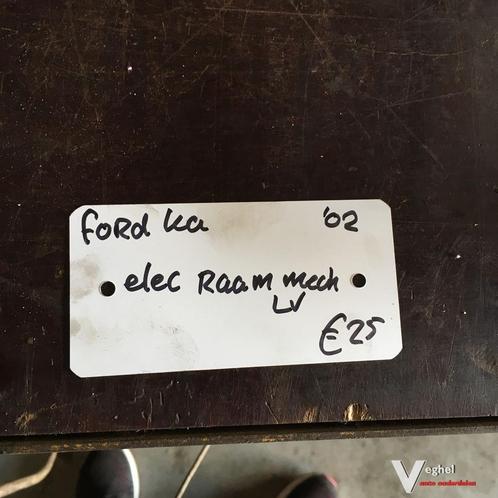 Ford Ka '02
elec Raam mech
LV
€25
Veghel
auto onderdelen